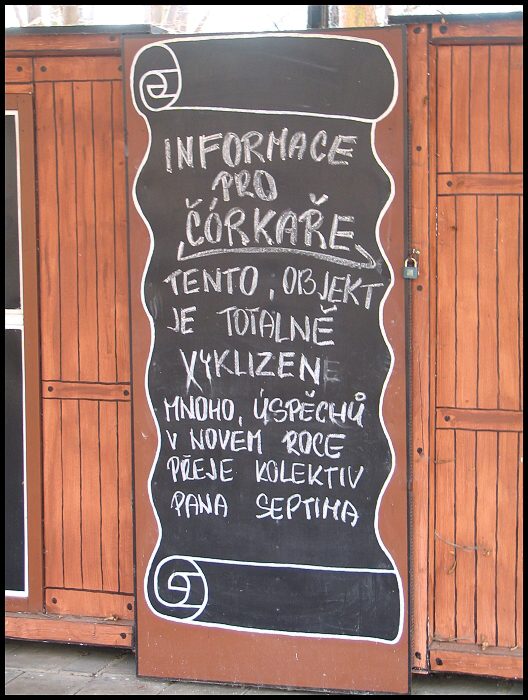 INFORMACE
PRO
ČÓRKAŘE
TENTO, OBJEKT
JE TOTÁLNĚ
VYKLIZENE
MNOHO, ÚSPĚCHŮ
V NOVÉM ROCE
PŘEJE KOLEKTIV
PANA SEPTIMA